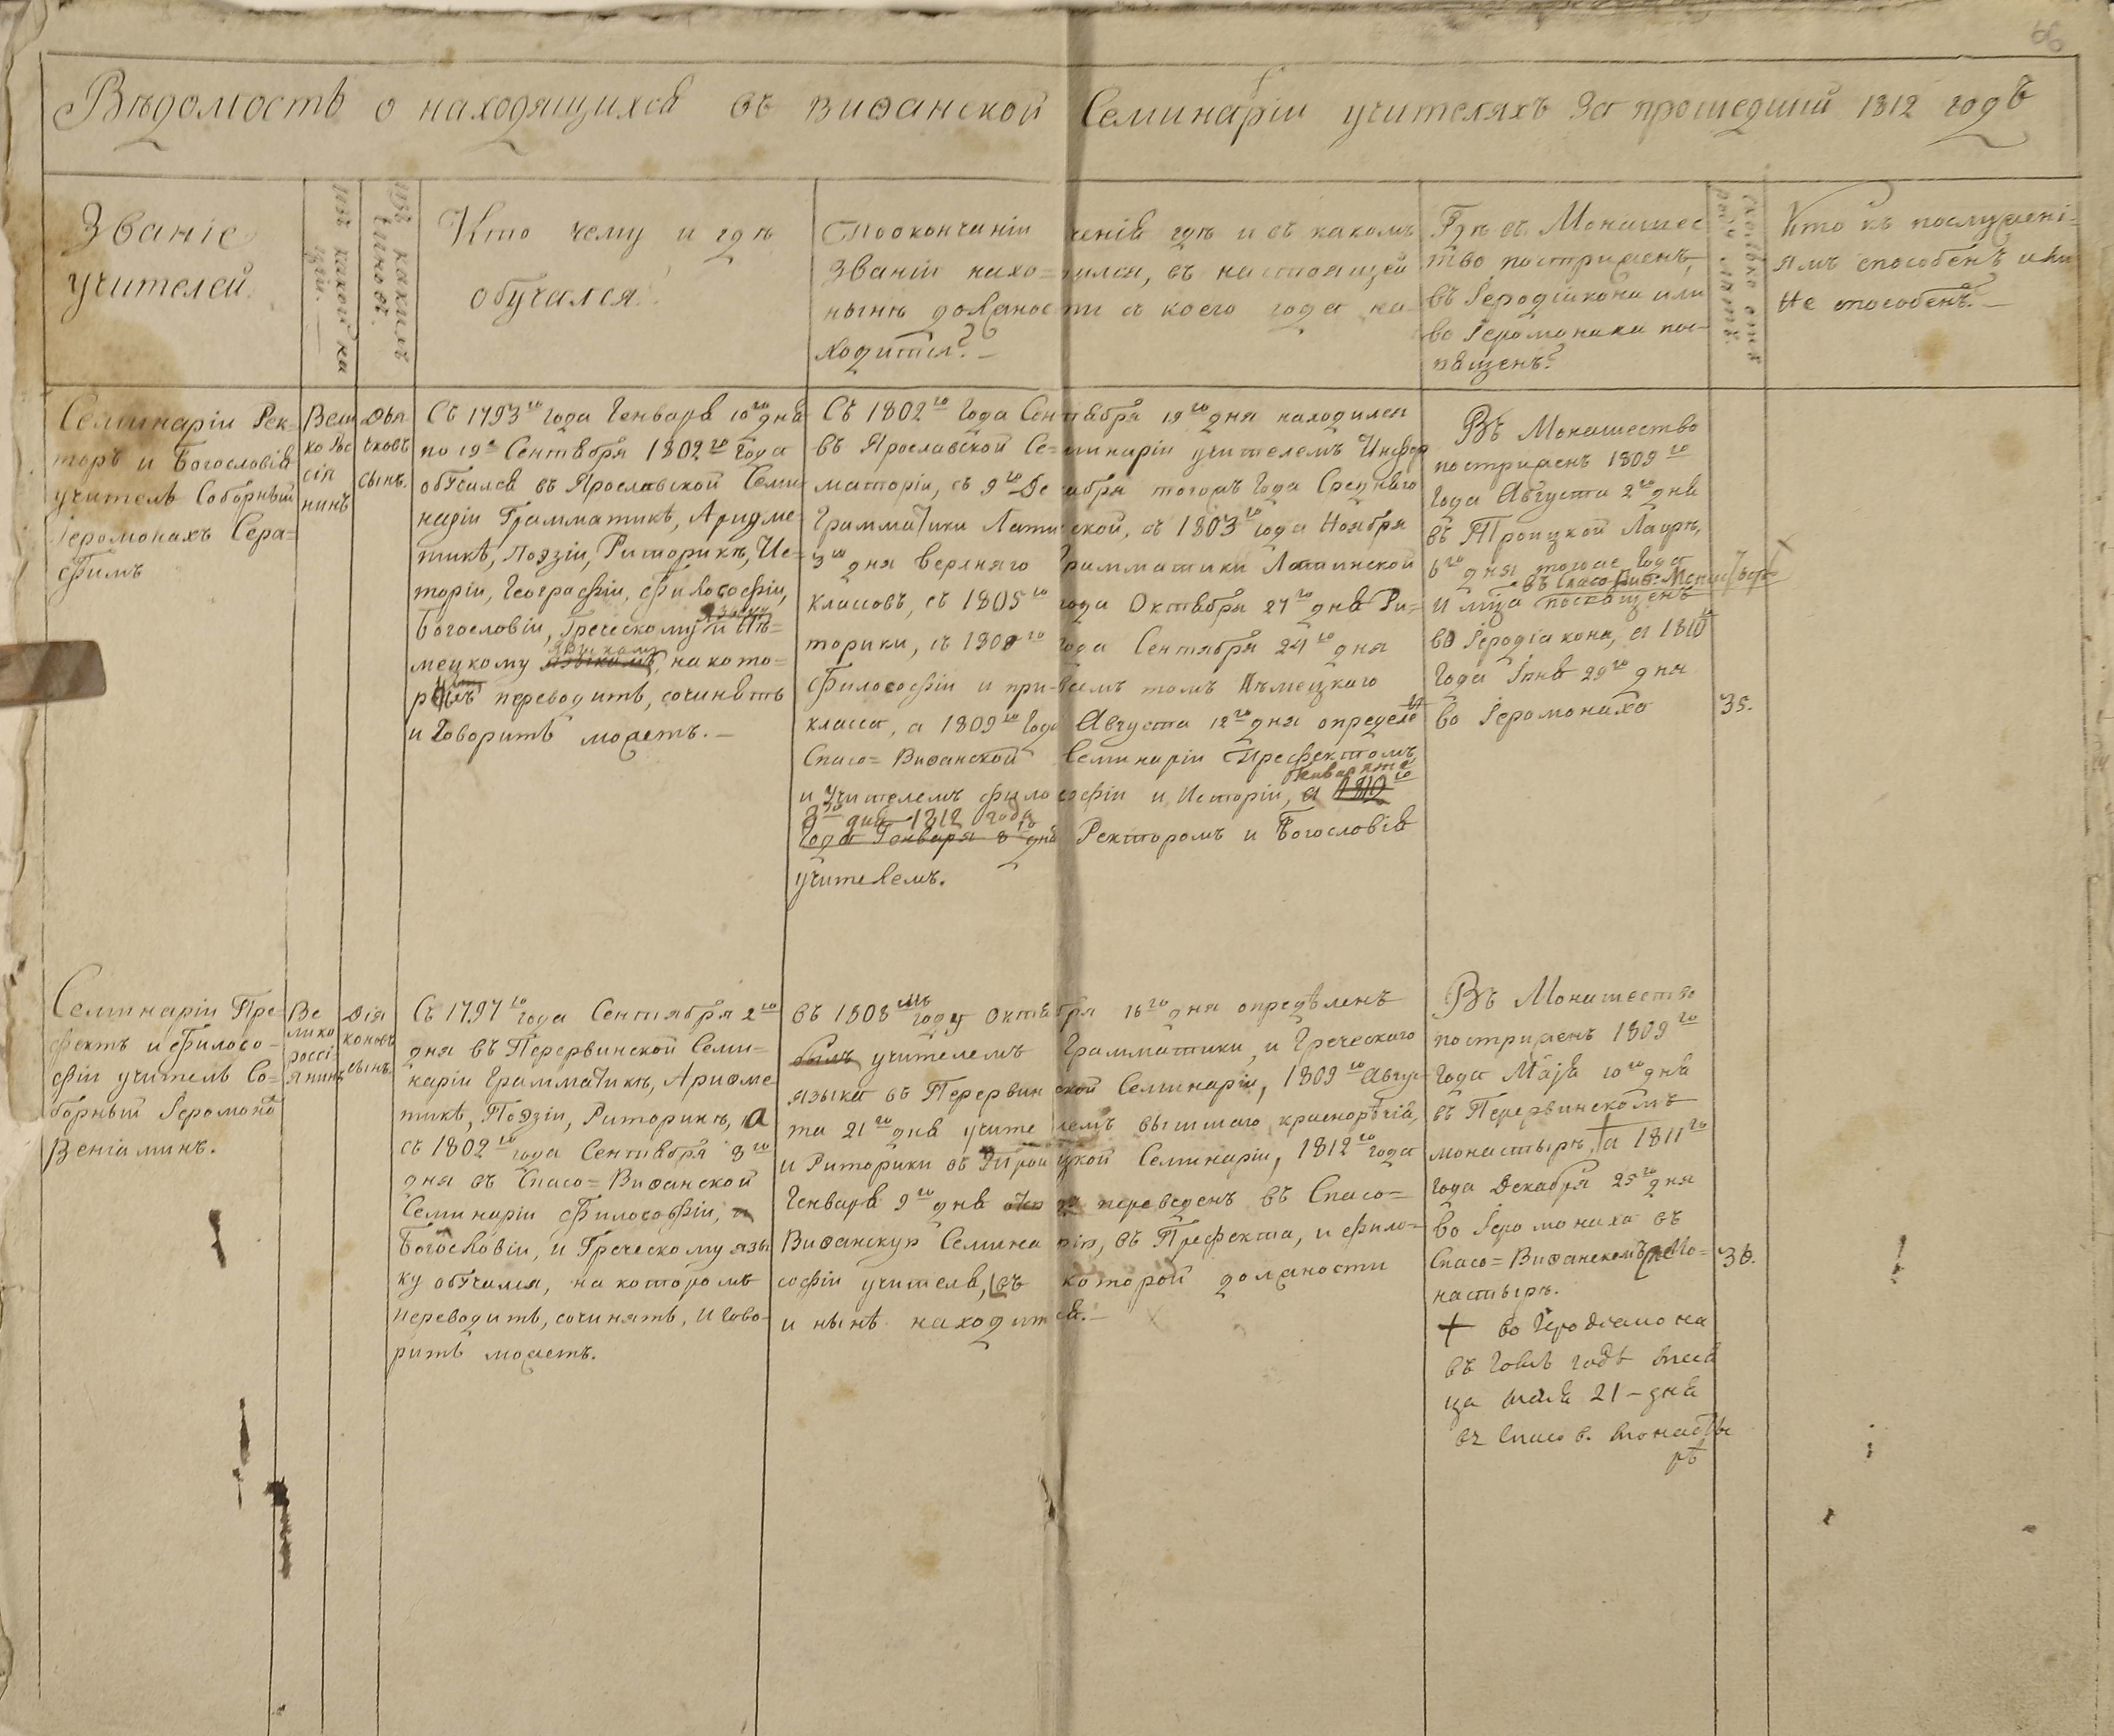 66
Вѣдомость о находящихся въ Виѳанской Семинаріи учителяхъ за прошедшій 1812 годъ
Званіе
учителей.
изъ какой на
ціи.
изъ какихъ
чиновъ.
Кто чему и гдѣ
обучался.
По окончаніи ученія гдѣ и въ какомъ
званіи нахо=дился, въ настоящей
нынѣ должности съ коего года на=
ходится?
Гдѣ въ Монашес
тво постриженъ,
въ Іеродіакона или
во Іеромонаха по=
священъ?
сколько отъ
роду лѣтъ.
Кто къ послушані=
ямъ способенъ или
не способенъ.
Семинаріи Рек=
торъ и Богословія
учитель Соборный
Іеромонахъ Сера=
фимъ
Вели
ко Рос
сія
нинъ
Дья
чковъ
сынъ.
Съ 1793го года Генваря 10го дня
по 19е Сентября 1802го года
обучался въ Ярославской Семи
наріи Грамматикѣ, Ариѳме
тикѣ, Поэзіи, Риторикѣ, Ис=
торіи, Географіи, Философіи,
языку
Богословіи, Греческому и Нѣ=
языкамъ
мецкому языкамъ, на кото=
рыхъ переводить, сочинять
и говорить можетъ.
Съ 1802го года Сентября 19го дня находился
въ Ярославской Се=минаріи учителемъ Инфор
маторіи, съ 9го Декабря тогожъ года Средняго
Грамматики Латинской, съ 1803го года Ноября
3го дня верхняго Грамматики Латинской
классовъ, съ 1805го года Октября 27го дня Ри=
торики, съ 1808го года Сентября 24го дня
Философіи и при=всемъ томъ Нѣмецкаго
класса, а 1809го года Августа 12го дня опредѣле
Спасо=Виѳанской Семинаріи Префектомъ
Генваря
и учителемъ философіи и Исторіи, а 1812го
8го дня 1812 года
года Генваря 8 дня Ректоромъ и Богословія
учителемъ.
Въ Монашество
постриженъ 1809го
года Августа 2го дня
въ Троицкой Лаврѣ,
6го дня тогоже года
въ Спасо Виѳ: Монастырѣ
и мца посвященъ
во Іеродіакона, а 1810го
года Іюня 29го дня
во Іеромонаха
35.
Семинаріи Пре=
фектъ и Филосо=
фіи учитель Со=
борный Іеромона
Веніаминъ.
Ве
лико
россі
янинъ
Дія
коновъ
сынъ.
Съ 1797го года Сентября 2го
дня въ Перервинской Семи=
наріи Грамматикѣ, Ариѳме
тикѣ, Поэзіи, Риторикѣ, а
съ 1802го года Сентября 8го
дня въ Спасо=Виѳанской
Семинаріи Философіи, и
Богословіи, и Греческому язы
ку обучался, на которомъ
переводить, сочинять, и гово=
рить можетъ.
въ 1808мъ году Октября 16го дня опредѣленъ
былъ учителемъ Грамматики, и Греческаго
языка въ Перервинской Семинаріи, 1809го Авгус=
та 21го дня учителемъ высшаго краснорѣчія,
и Риторики въ Троицкой Семинаріи, 1812го года
Генваря 9го дня переведенъ въ Спасо=
Виѳанскую Семинарію, въ Префекта, и фило=
софіи учителя, въ которой должности
и нынѣ находится.
Въ Монашество
постриженъ 1809го
года Маія 10го дня
въ Перервинскомъ
монастырѣ, а 1811го
года Декабря 25го дня
во Іеромонаха въ
Спасо=Виѳанскомъ Мо=
настырѣ.
+ во Іеродіакона
въ томъ годѣ мѣся
ца маія 21 - дня
въ Спасо в. монасты
рѣ
36.